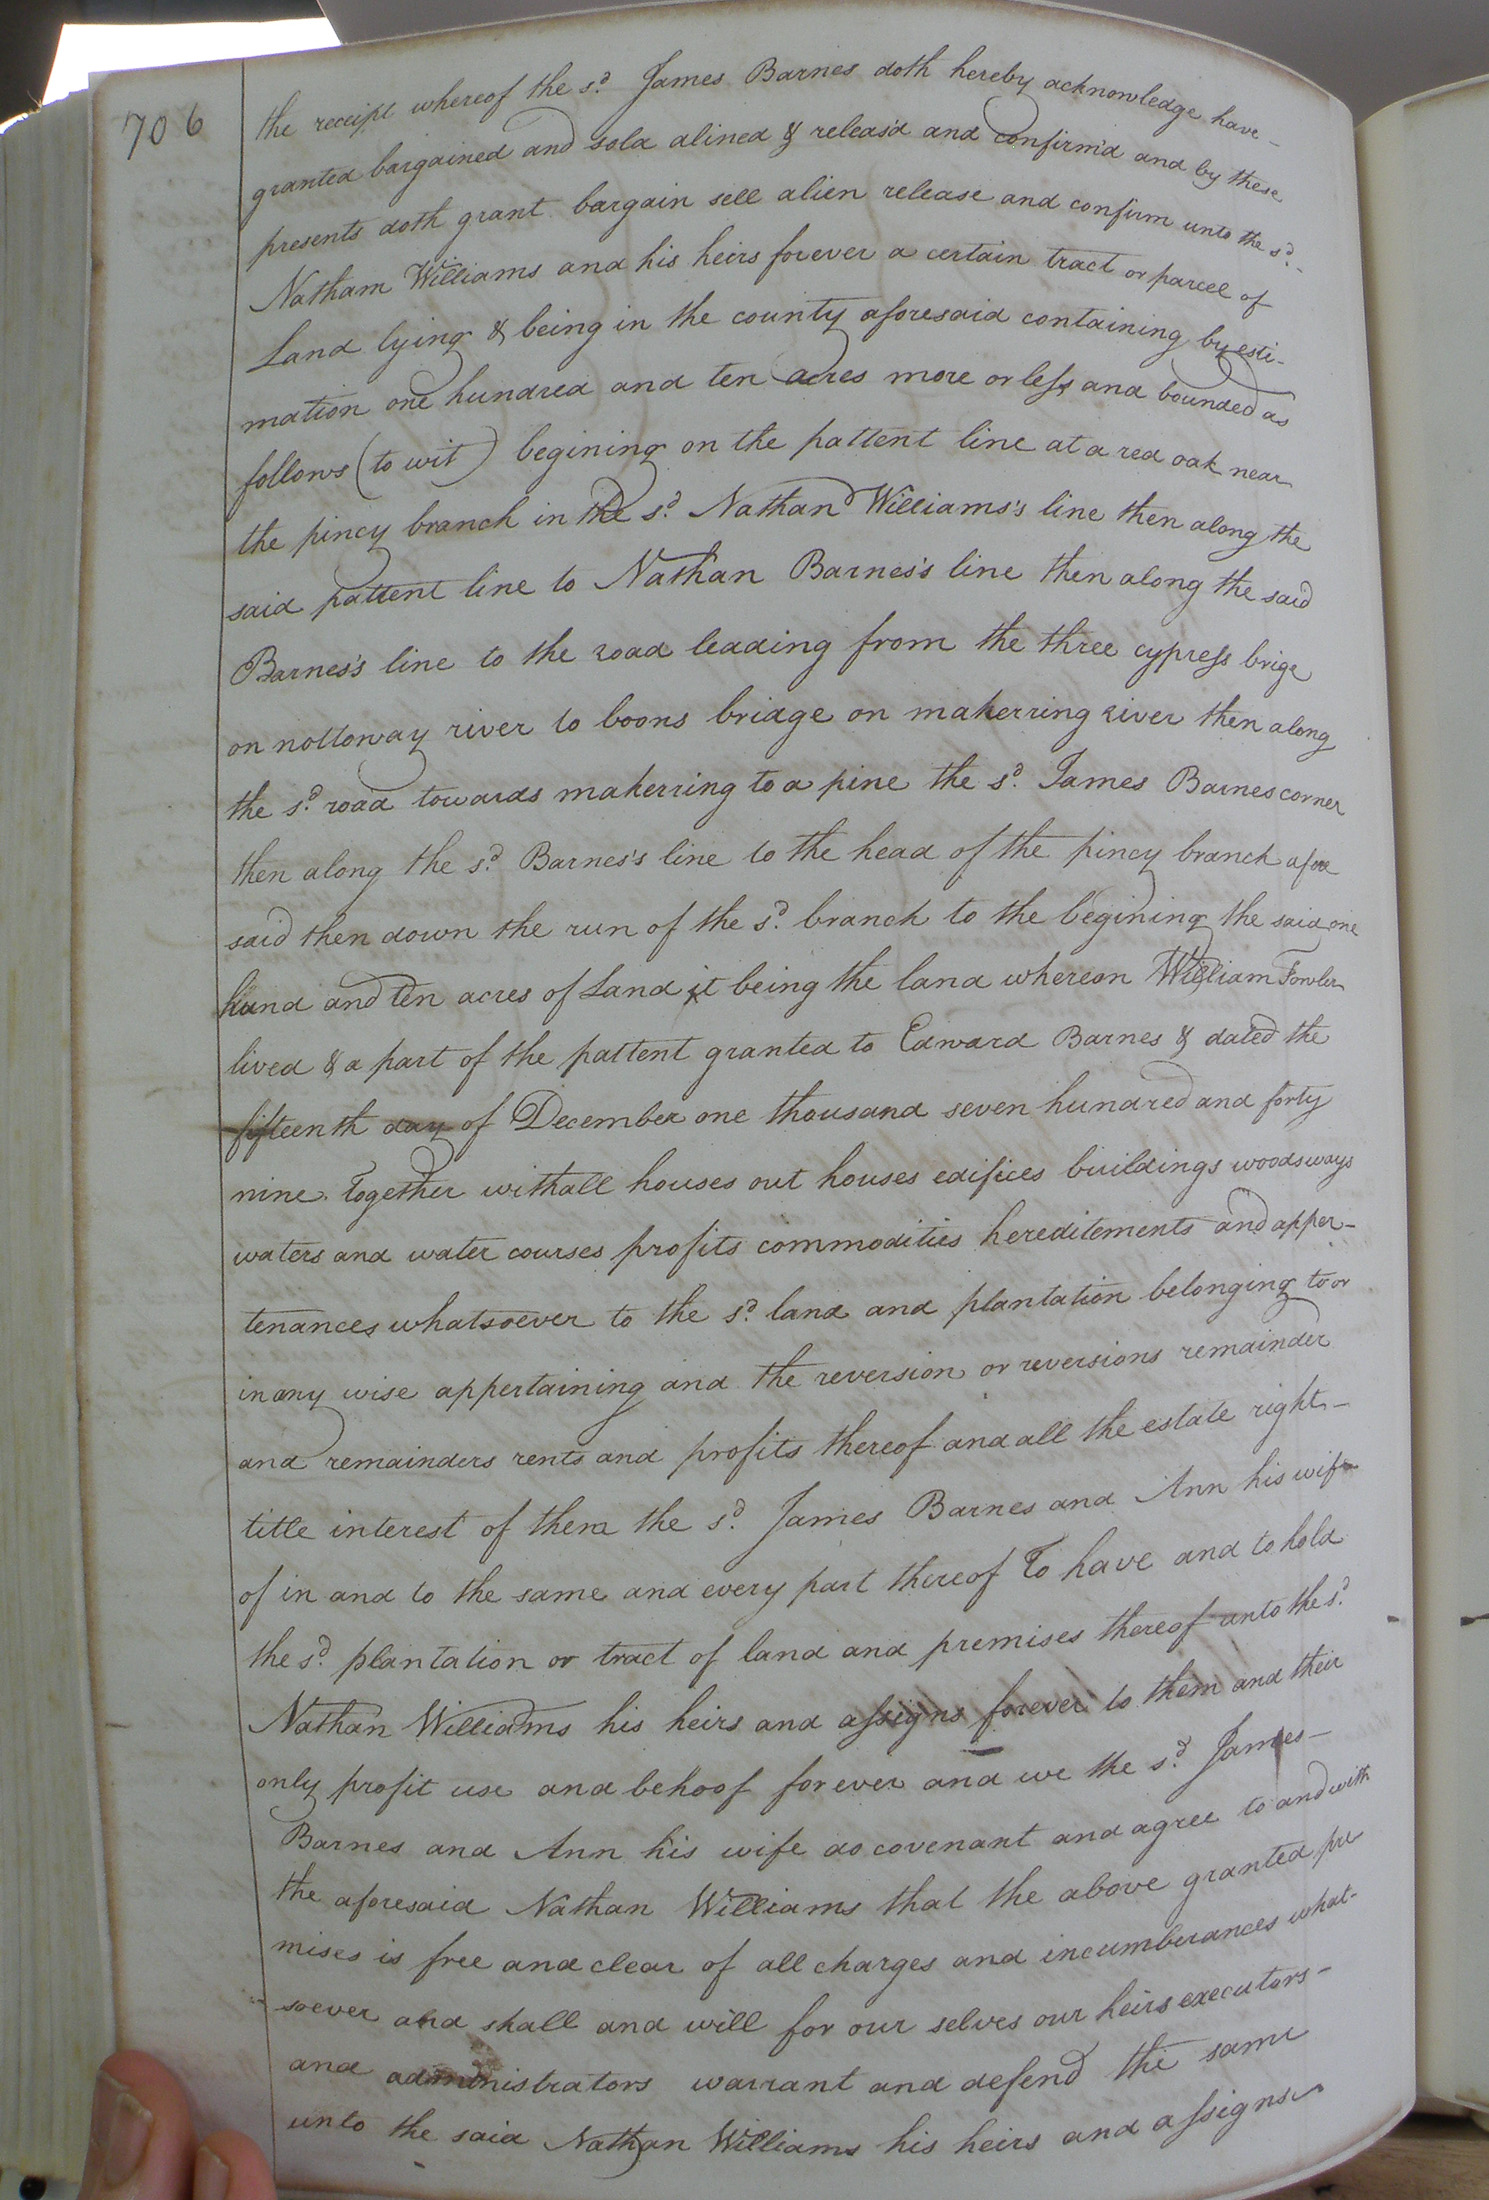 706
the receipt whereof the sd. James Barnes doth hereby acknowledge have
granted bargained and sold alined & releas'd and confirm'd and by these
presents doth grant bargain sell alien release and confirm unto the sd.
Natham Williams and his heirs forever a certain tract or parcel of
Land lying & being in the county aforesaid containing by esti-
mation one hundred and ten acres more or less and bounded as
follows (to wit) begining on the pattent line at a red oak near
the piney branch in the sd. Nathan Williams's line then along the
said pattent line to Nathan Barnes's line then along the said
Barnes's line to the road leading from the three cypress brige
on nottoway river to boons bridge on maherring river then along
the sd. road towards maherring to a pine the sd. James Barnes corner
then along the sd. Barnes's line to the head of the piney branch afore
said then down the run of the sd. branch to the begining the said one
hund and ten acres of Land it being the land whereon William Fowler
lived & a part of the pattent granted to Edward Barnes & dated the
fifteenth day of December one thousand seven hundred and forty
nine. Together with all houses out houses edifices buildings woods ways
waters and water courses profits commodities hereditements and apper-
tenances whatsoever to the sd. land and plantation belonging to or
in any wise appertaining and the reversion or reversions remainder
and remainders rents and profits thereof and all the estate right-
title interest of them the sd. James Barnes and Ann his wife
of in and to the same and every part thereof To have and to hold
the sd. plantation or tract of land and premises thereof unto the sd.
Nathan Williams his heirs and assigns forever to them and their
only profit use and behoof for ever and we the sd. James-
Barnes and Ann his wife do covenant and agree to and with
the aforesaid Nathan Williams that the above granted pre
mises is free and clear of all charges and incumberances what-
soever and shall and will for our selves our heirs executors-
and administrators warrant and defend the same
unto the said Nathan Williams his heirs and assigns